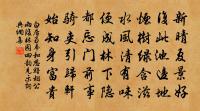 新晴夏景好
復此池邊地
煙樹綠含滋
水風清有味
便成林下隱
都忘門前事
騎吏引歸軒
始知身富貴
白居易奉和思黯相公
雨後林園四韻見示詞